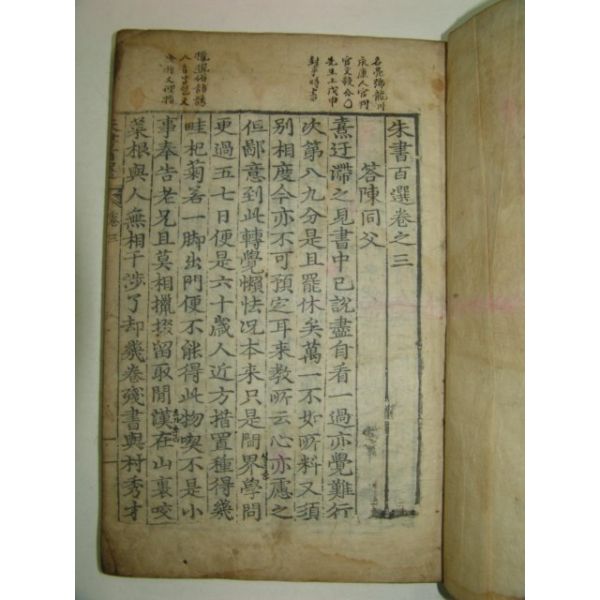 朱書百選卷之三
答陳同父
熹迂滯之見書中已說盡自看一過亦覺難行
次第八九分是且罷休矣萬一不如所料又須
別相度今亦不可預定耳來教所云心亦慮之
但鄙意到此轉覺懶怯况本來只是間界學問
更過五七日便是六十歲人近方措置種得幾
畦杞菊若一脚出門便不能得此物喫不是小
事奉告老兄且莫相攛掇留取閒漢在山裏咬
菜根與人無相干涉了却幾卷殘書與村秀才
卷三
名亮號龍川
永康人官
先生上戊申
封事時